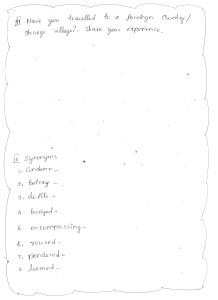 I] Have you travelled to a foreign Country/
strange village? - Share your experience.
II Synonyms
1. Condemn -
2. betray -
3. defile -
4. buoyed -
5. encompassing -
6. roused -
7. pondered -
8. loomed -